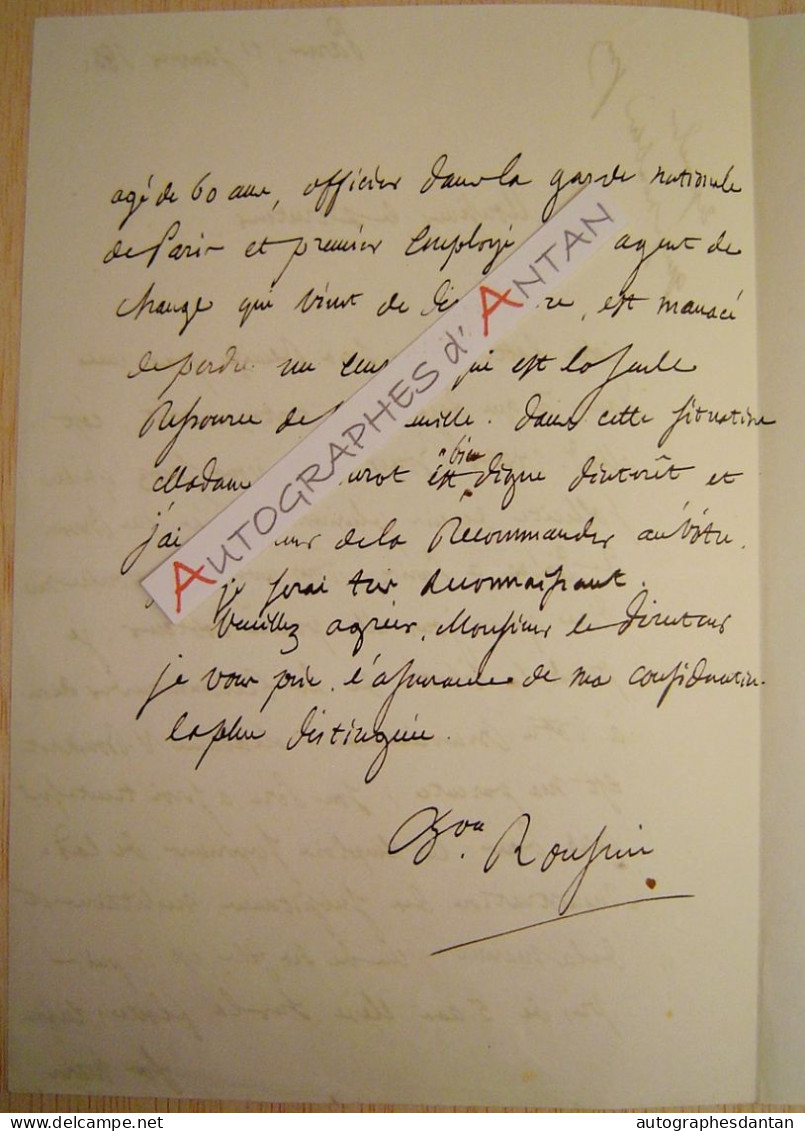 agé de 60 ans, officier dans la garde nationale
de Paris et premier employé agent de
change qui vient de , est menacé
de perdre un qui est la seule
Ressource de . dans cette situation
Madame est bien digne d'intérêt et
j'ai de la Recommander au vôtre.
je serai très reconnaissant.
Veuillez agréer, Monsieur le directeur
je vous prie, l'assurance de ma considération
la plus distinguée.
Bon. Roussin
AUTOGRAPHES d'ANTAN
delcampe.net
autographesdantan